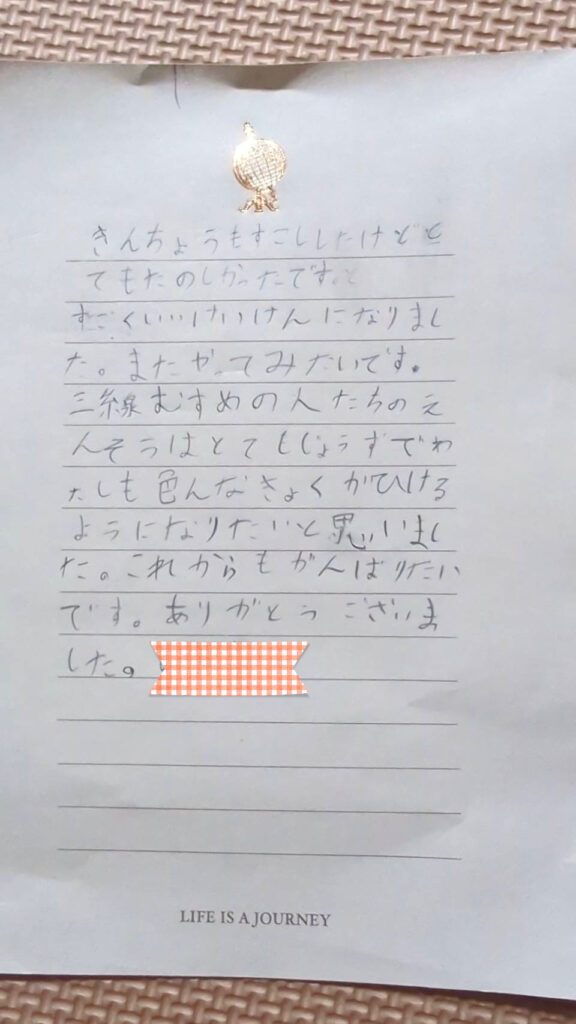 きんちょうもすこししたけどと
てもたのしかったです。
すごくいいけいけんになりまし
た。またやってみたいです。
三線むすめの人たちのえ
んそうはとてもじょうずでわ
たしも色んなきょくがひける
ようになりたいと思いまし
た。これからもがんばりたい
です。ありがとうございま
した。
LIFE IS A JOURNEY